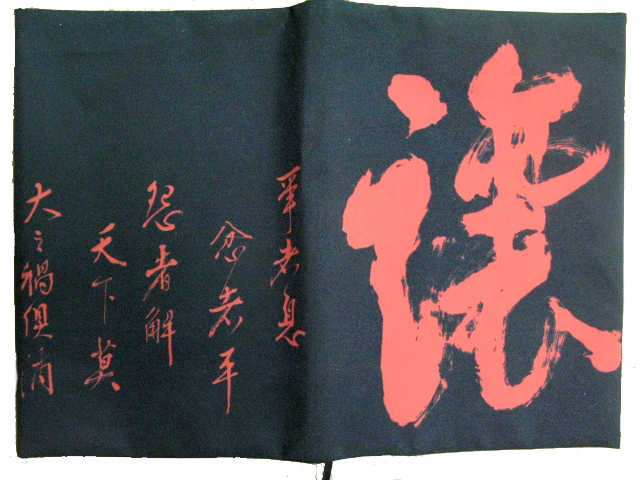 讓
爭者息
忿者平
怨者解
天下莫
大之禍俱消